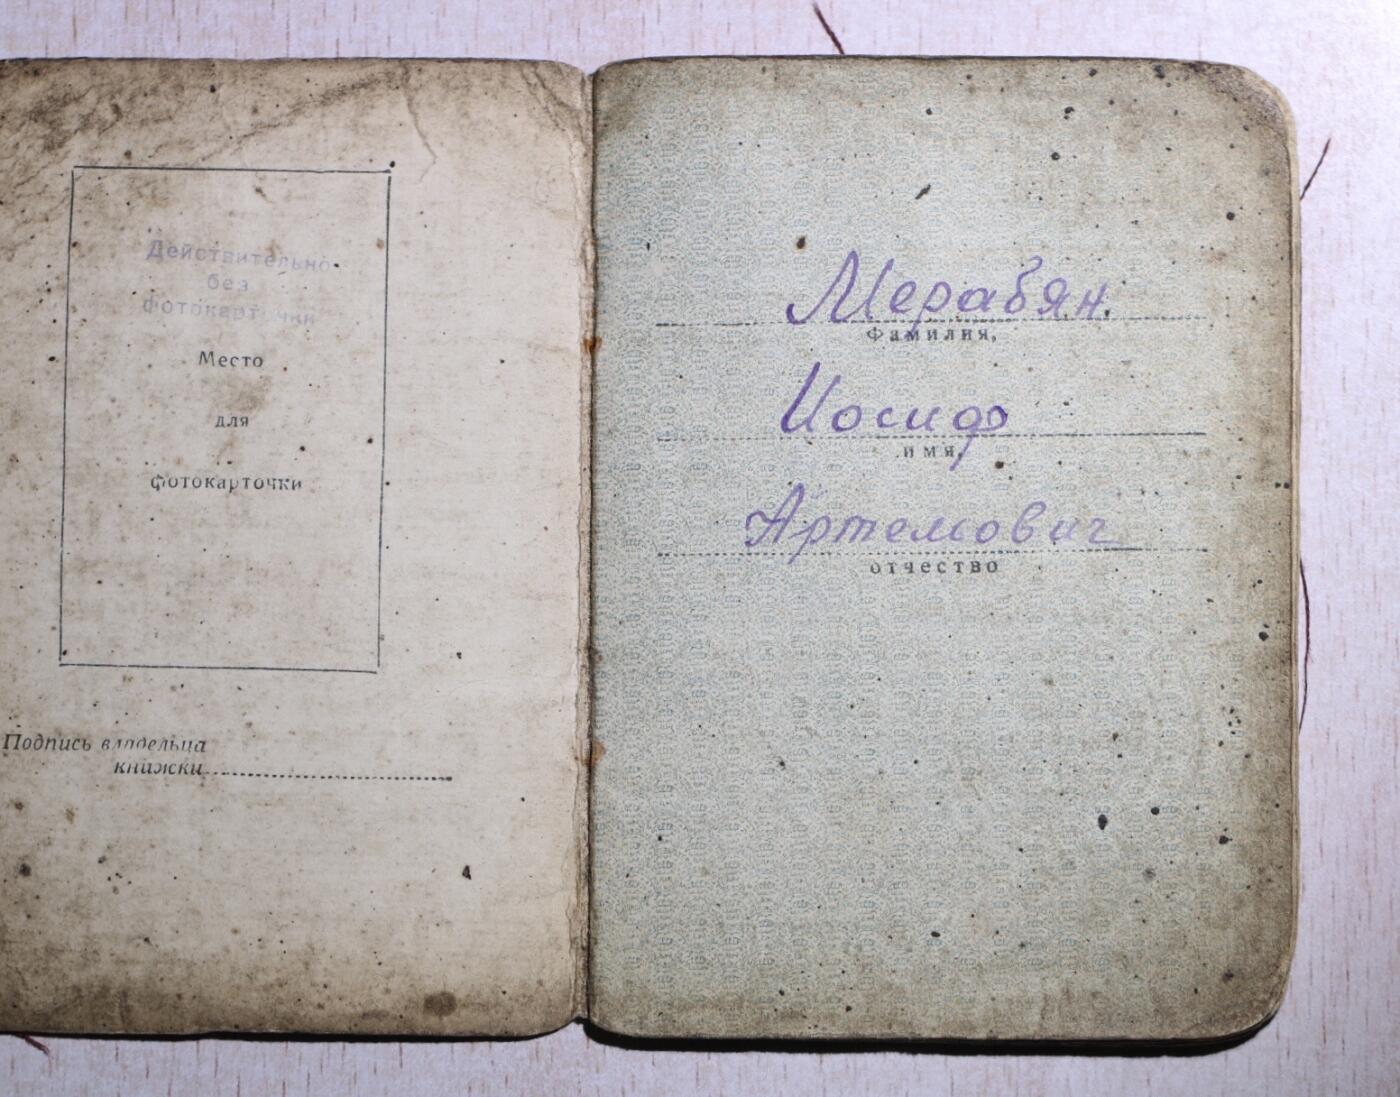 Действительно
без
фотокарточки
Место
для
фотокарточки
Подпись владельца
книжки
Мерабян
Фамилия,
Иосиф
имя,
Артемович
отчество